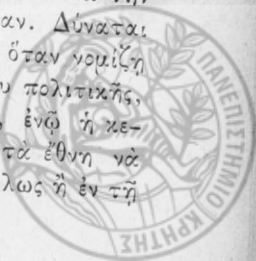 αν. Δύναται
ὅταν νομίζῃ
υ πολιτικῆς,
ἐνῷ ἡ κε-
τὰ ἔθνη νὰ
λως ἢ ἐν τῇ
ΠΑΝΕΠΙΣΤΗΜΙΟ ΚΡΗΤΗΣ